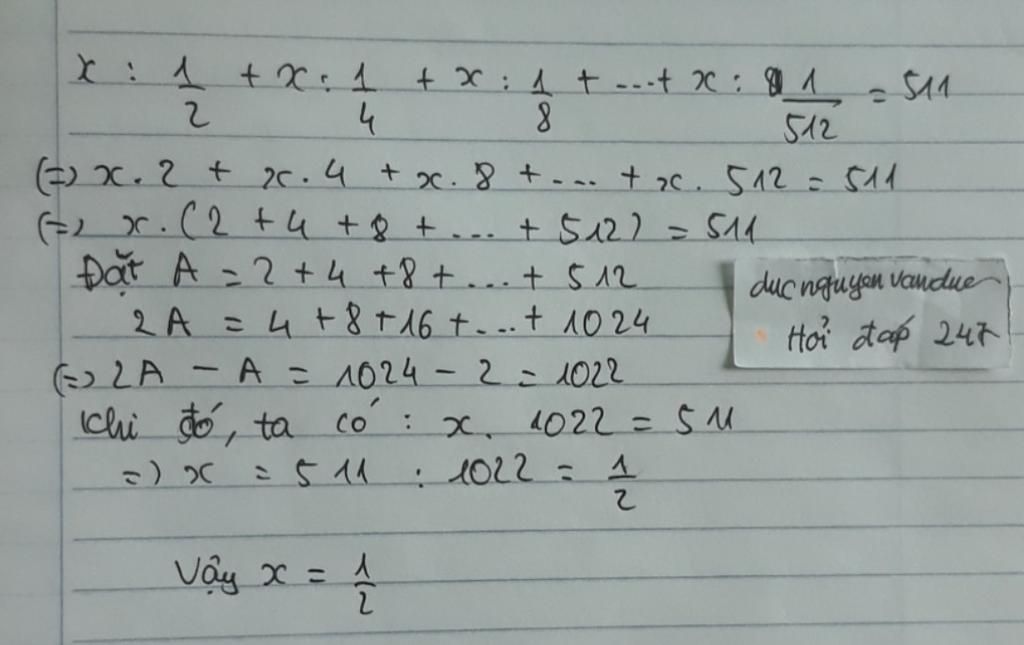 x : 1/2 + x : 1/4 + x : 1/8 + ... + x : 1/512 = 511
(=) x . 2 + x . 4 + x . 8 + ... + x . 512 = 511
(=) x . (2 + 4 + 8 + ... + 512) = 511
Đặt A = 2 + 4 + 8 + ... + 512
2A = 4 + 8 + 16 + ... + 1024
(=) 2A - A = 1024 - 2 = 1022
Khi đó, ta có : x . 1022 = 511
=) x = 511 : 1022 = 1/2
Vậy x = 1/2
ducnguyenvanduc
Hỏi đáp 247